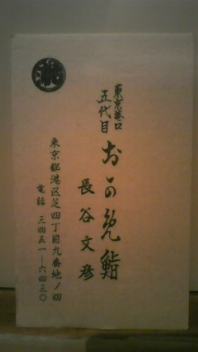 東京築口
五代目
おかめ鮨
長谷文彦
東京都港区芝四丁目九番地ノ四
電話 三四五一―六四三〇